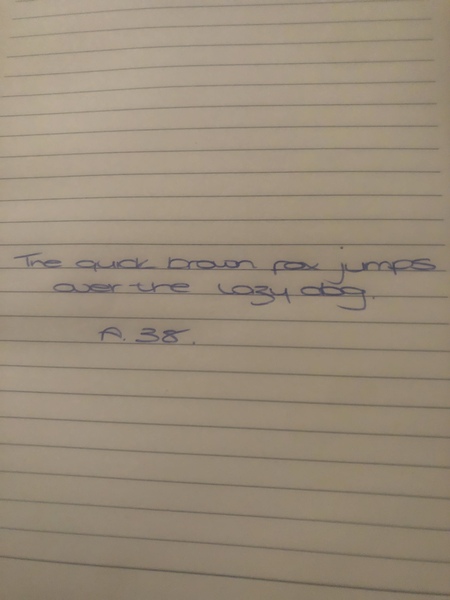 The quick brown fox jumps
over the lazy dog.
A. 38.